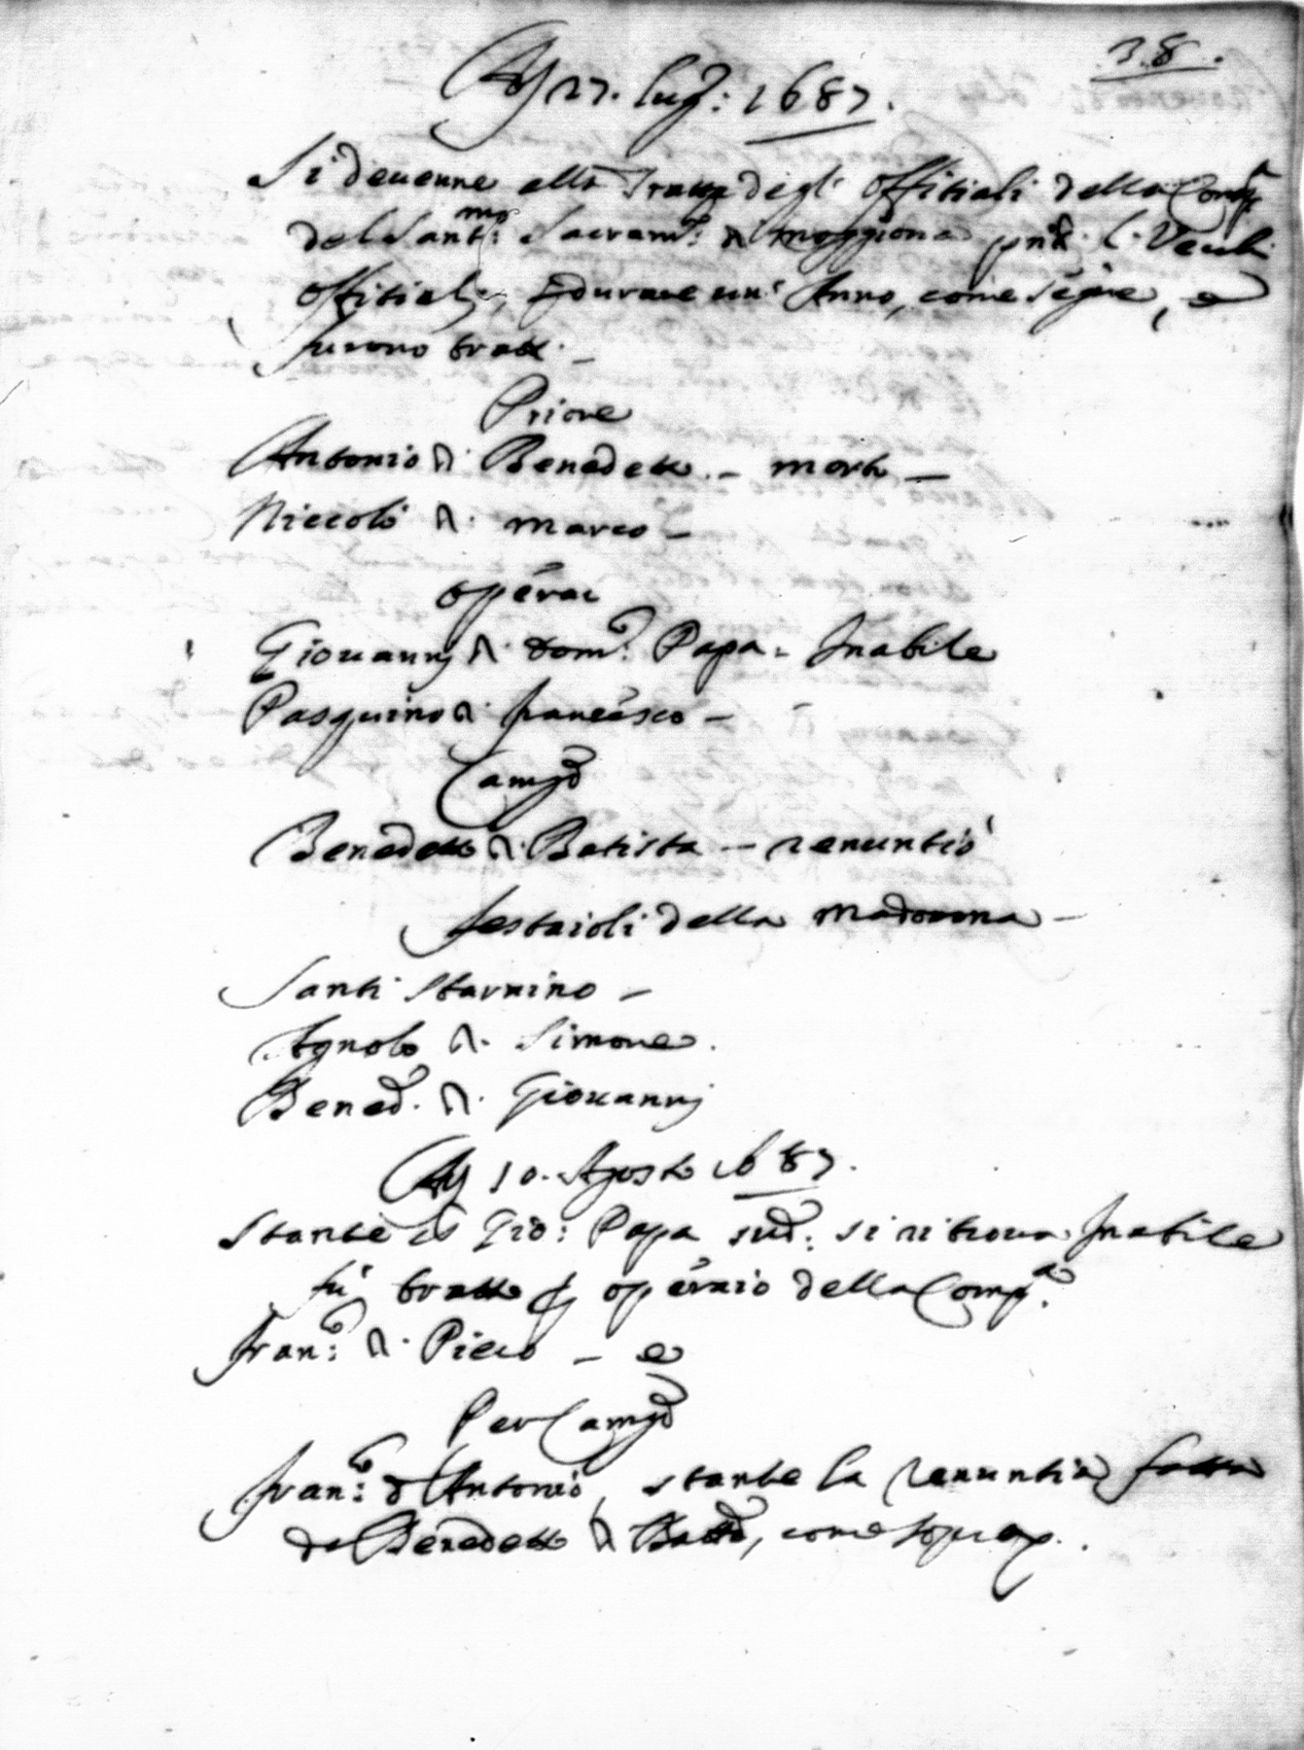 38.
Ady 27. lug: 1687.
Si deuenne alla Tratta degl' Offitiali della Compa
del Santmo: Sacramto: di Moggiona pnti l. Vecchi
Offitiali, durare un' Anno, come segue, e
furono tratti.
Priore
Antonio di Benedetto. - morto -
Niccolò di marco -
operai
Giouannj di Domco: Papa. Inabile
Pasquino di francesco -
Camo
Benedetto di Batista - renuntiò
festaioli della Madonna -
Santi Starnino -
Agnolo di Simone.
Benedo. di Giouannj
Ady 10. Agosto 1687.
Stante Gio: Papa sudo: si ritroua Inabile
fù tratto p operaio della Compa.
franco: di Piero - e
Per Camo
franco: d'Antonio, stante la renuntia fatta
da Benedetto di Batta, come sopra.